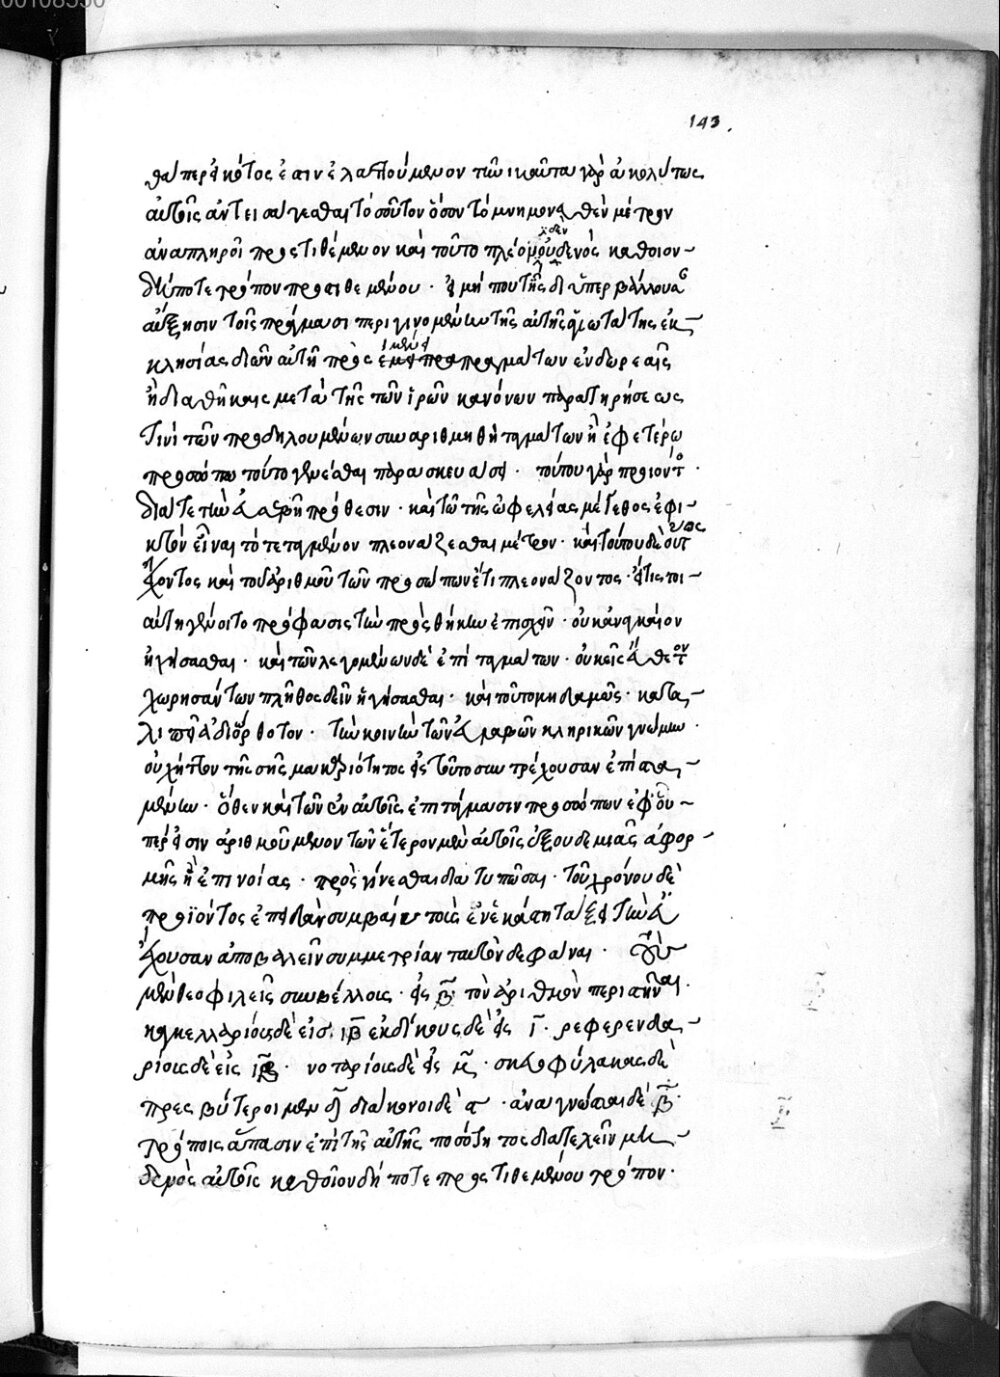 00108530
143
θαι περ εἰκότος ἐστιν ἐλαττούμενον τηνικαῦτα γὰρ ἀκολύτως
αὐτοῖς ἀντεισάγεσθαι τοσοῦτον ὅσον τὸ μνημονευθὲν μέτρον
ἀναπληροῖ προστιθέμενον καὶ τοῦτο πλέον οὐδενὸς καθοιον-
δήποτε τρόπον προστιθεμένου · εἰ μή που τῆς δι ὑπερβάλλουσ
αὔξησιν τοῖς πράγμασι περιγινομένην τῆς αὐτῆς ἁγιωτάτης ἐκ-
κλησίας διων αὐτῇ πρὸς πραγμάτων ἐν δωρεαῖς
ἢ διαθήκαις μετὰ τῆς τῶν ἱρῶν κανόνων παρατηρήσεως
τινὶ τῶν προδηλουμένων συναριθμηθῆ ταγμάτων ἢ ἐφετέρω
προσώπω τοῦτο γενέσθαι παρασκευάσει · τούτου γὰρ προιόντο ·
διά τε τὴν εὐσεβῆ πρόθεσιν · καὶ τῶ τῆς ὠφελείας μέγεθος ἐφι-
κτὸν εἶναι τὸ τεταγμένον πλεονάζεσθαι μέτρον · καὶ τούτου δὲ οὕτως
ἔχοντος καὶ τοῦ ἀριθμοῦ τῶν προσώπων ἔτι πλεονάζοντος · ἥτις τοι-
αύτη γένοιτο πρόφασις τὴν προσθήκην ἐπισχεῖν · οὐκ ἀναγκαῖον
ἡγήσασθαι · καὶ τῶν λεγομένων δὲ ἐπιταγμάτων · οὐκ εἰς
χωρησάντων πλῆθος δεῖν ἡγήσασθαι · καὶ τοῦτο μηδαμῶς · κατα-
λιπεῖν ἀδιόρθοτον · τὴν κοινὴν τῶν εὐλαβῶν κληρικῶν γνώμην ·
οὐχ ἧττον τῆς σῆς μακαριότητος εἰς τοῦτο συντρέχουσαν ἐπιστα-
μένων · ὅθεν καὶ τῶν ἐν αὐτοῖς ἐπιτάγμασιν προσώπων ἐφ οὗ-
πέρ εἰσιν ἀριθμοῦ μένοντων ἕτερον μὲν αὐτοῖς ἐξ οὐδεμιᾶς ἀφορ-
μῆς ἢ ἐπινοίας · προσγίνεσθαι διατυπῶσαι · τοῦ χρόνου δὲ
προϊόντος ἐπειδὰν συμβαίη τοῖς ἐν ἑκάστη τάξει τὴν
ἔχουσαν ἀποβαλεῖν συμμετρίαν ταυτὸν δεφαίναι ·
μὲν θεοφιλεῖς συνκέλλοις · εἰς β̅ τὸν ἀριθμὸν περιστῆναι ·
καγκελλαρίοις δὲ εἰς ιβ̅ ἐκδίκους δὲ εἰς ι̅ · ρεφερενδα-
ρίοις δὲ εἰς · νοταρίοις δὲ εἰς μ̅ · σκευοφύλακας δὲ
πρεσβύτεροι μεν δ̅ διάκονοι δὲ · ἀναγνώσται δὲ β̅ ·
τρόποις ἅπασιν ἐπὶ τῆς αὐτῆς ποσότητος διατελεῖν μη-
δενὸς αὐτοῖς καθοιονδήποτε προστιθεμένου τρόπον ·